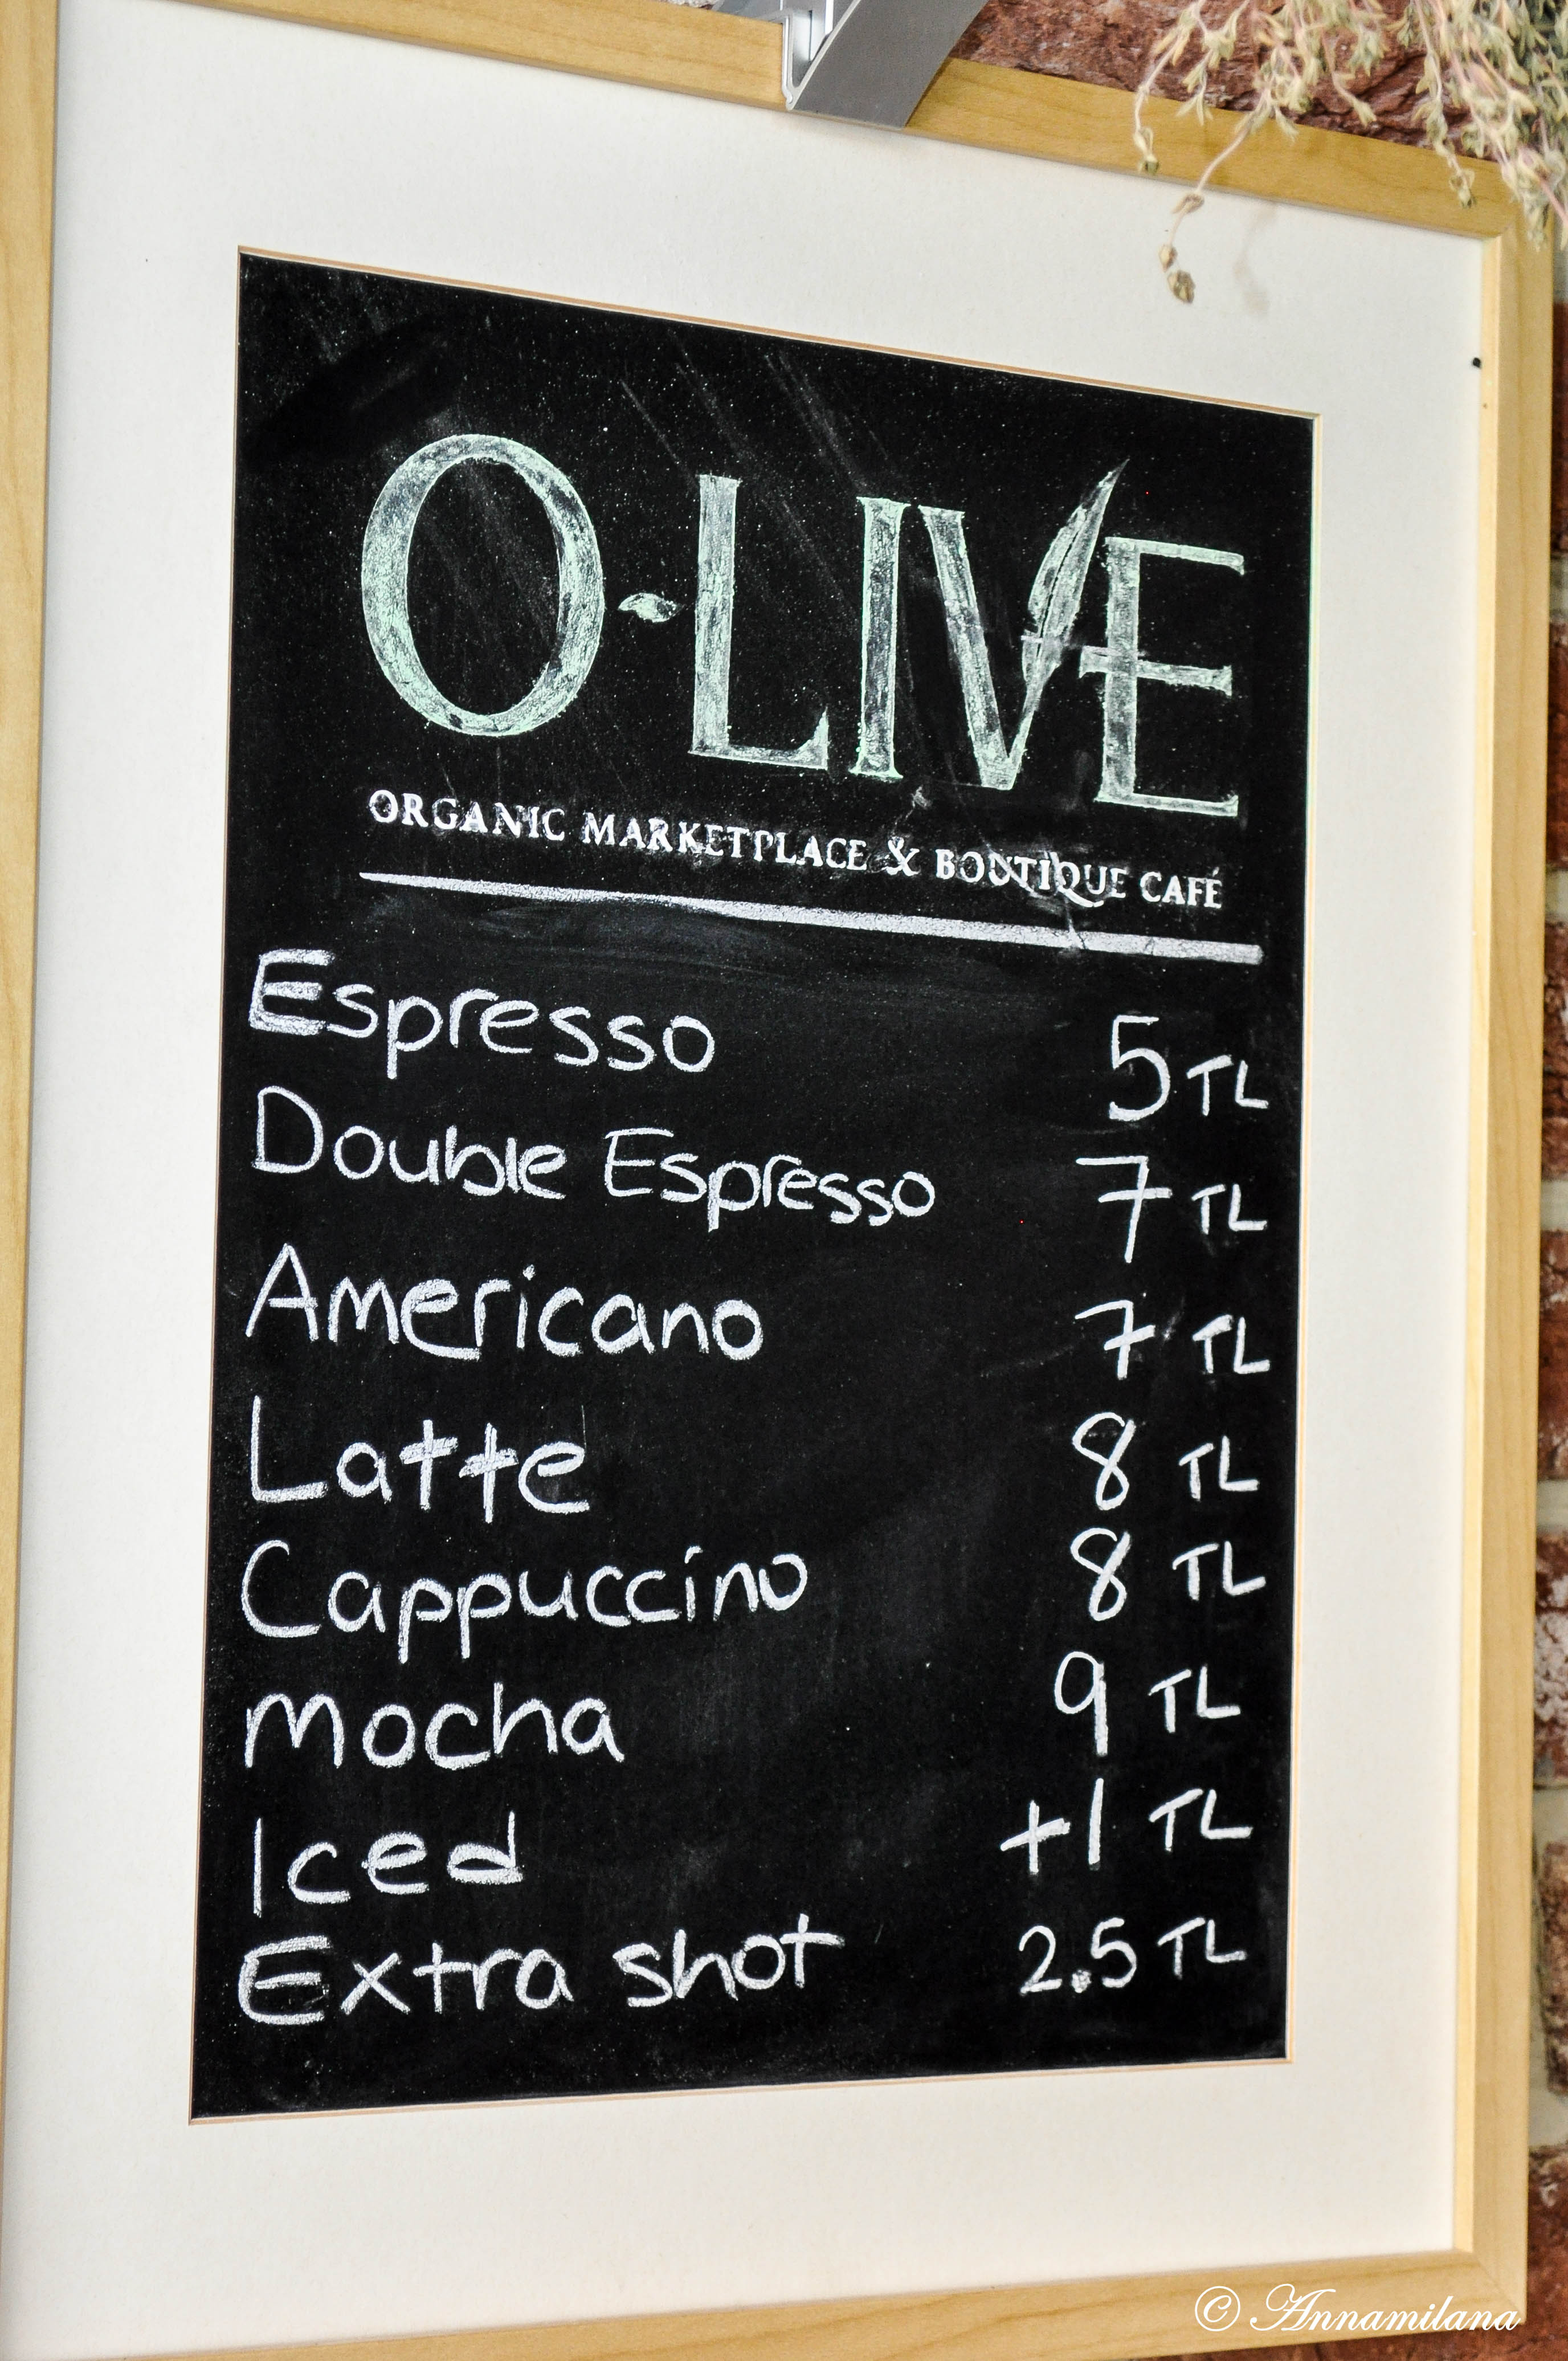 O-LIVE
ORGANIC MARKETPLACE & BOUTIQUE CAFÉ
Espresso 5 TL
Double Espresso 7 TL
Americano 7 TL
Latte 8 TL
Cappuccino 8 TL
Mocha 9 TL
Iced +1 TL
Extra shot 2.5 TL
© Annamilana